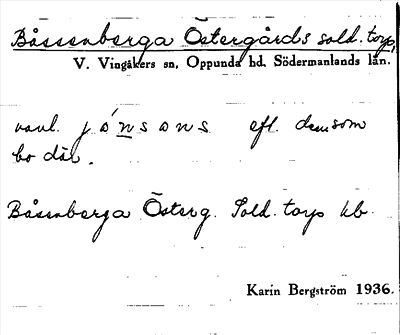 Båssenberga Östergårds sold. torp,
V. Vingåkers sn, Oppunda hd, Södermanlands län.
vanl. jónsons eft. dem som
bo där.
Båsenberga Österg. Sold. torp kb
Karin Bergström 1936.